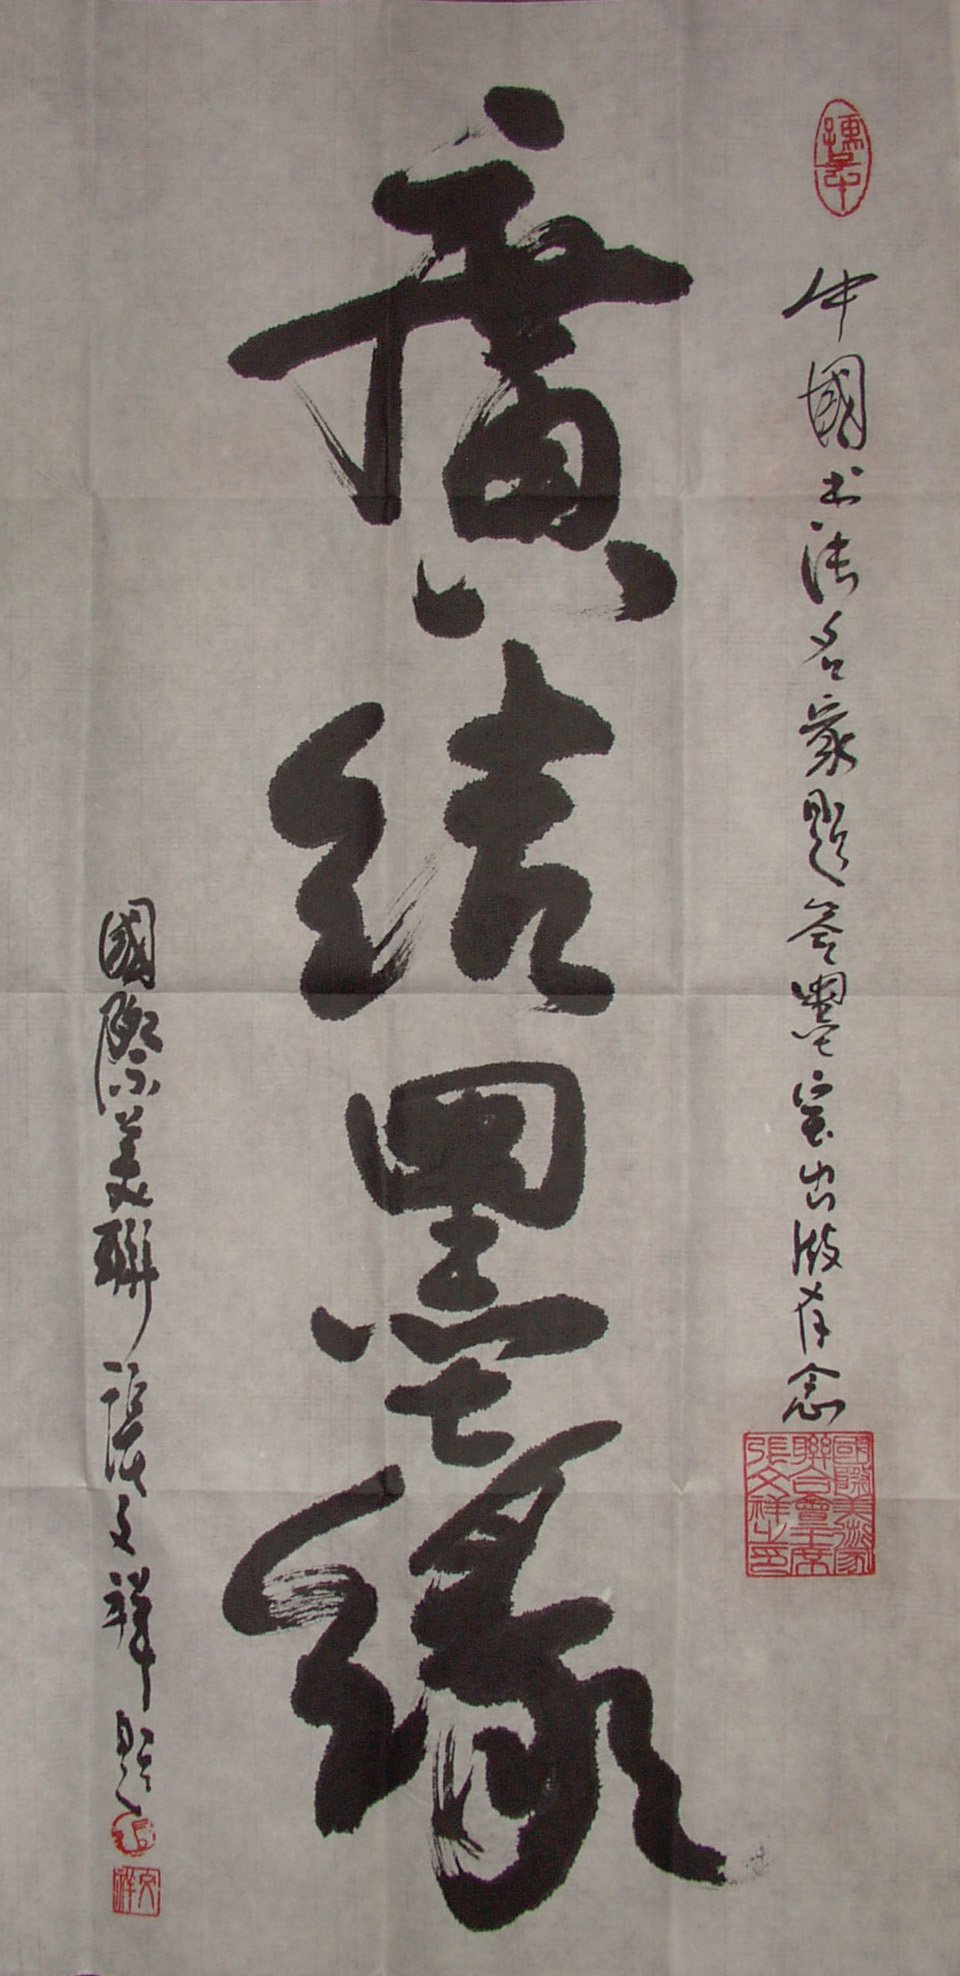 中國书法名家题签墨宝出版存念
國際美術家
聯合會主席
張文祥之印
廣結墨緣
國際美聯張文祥题
文祥